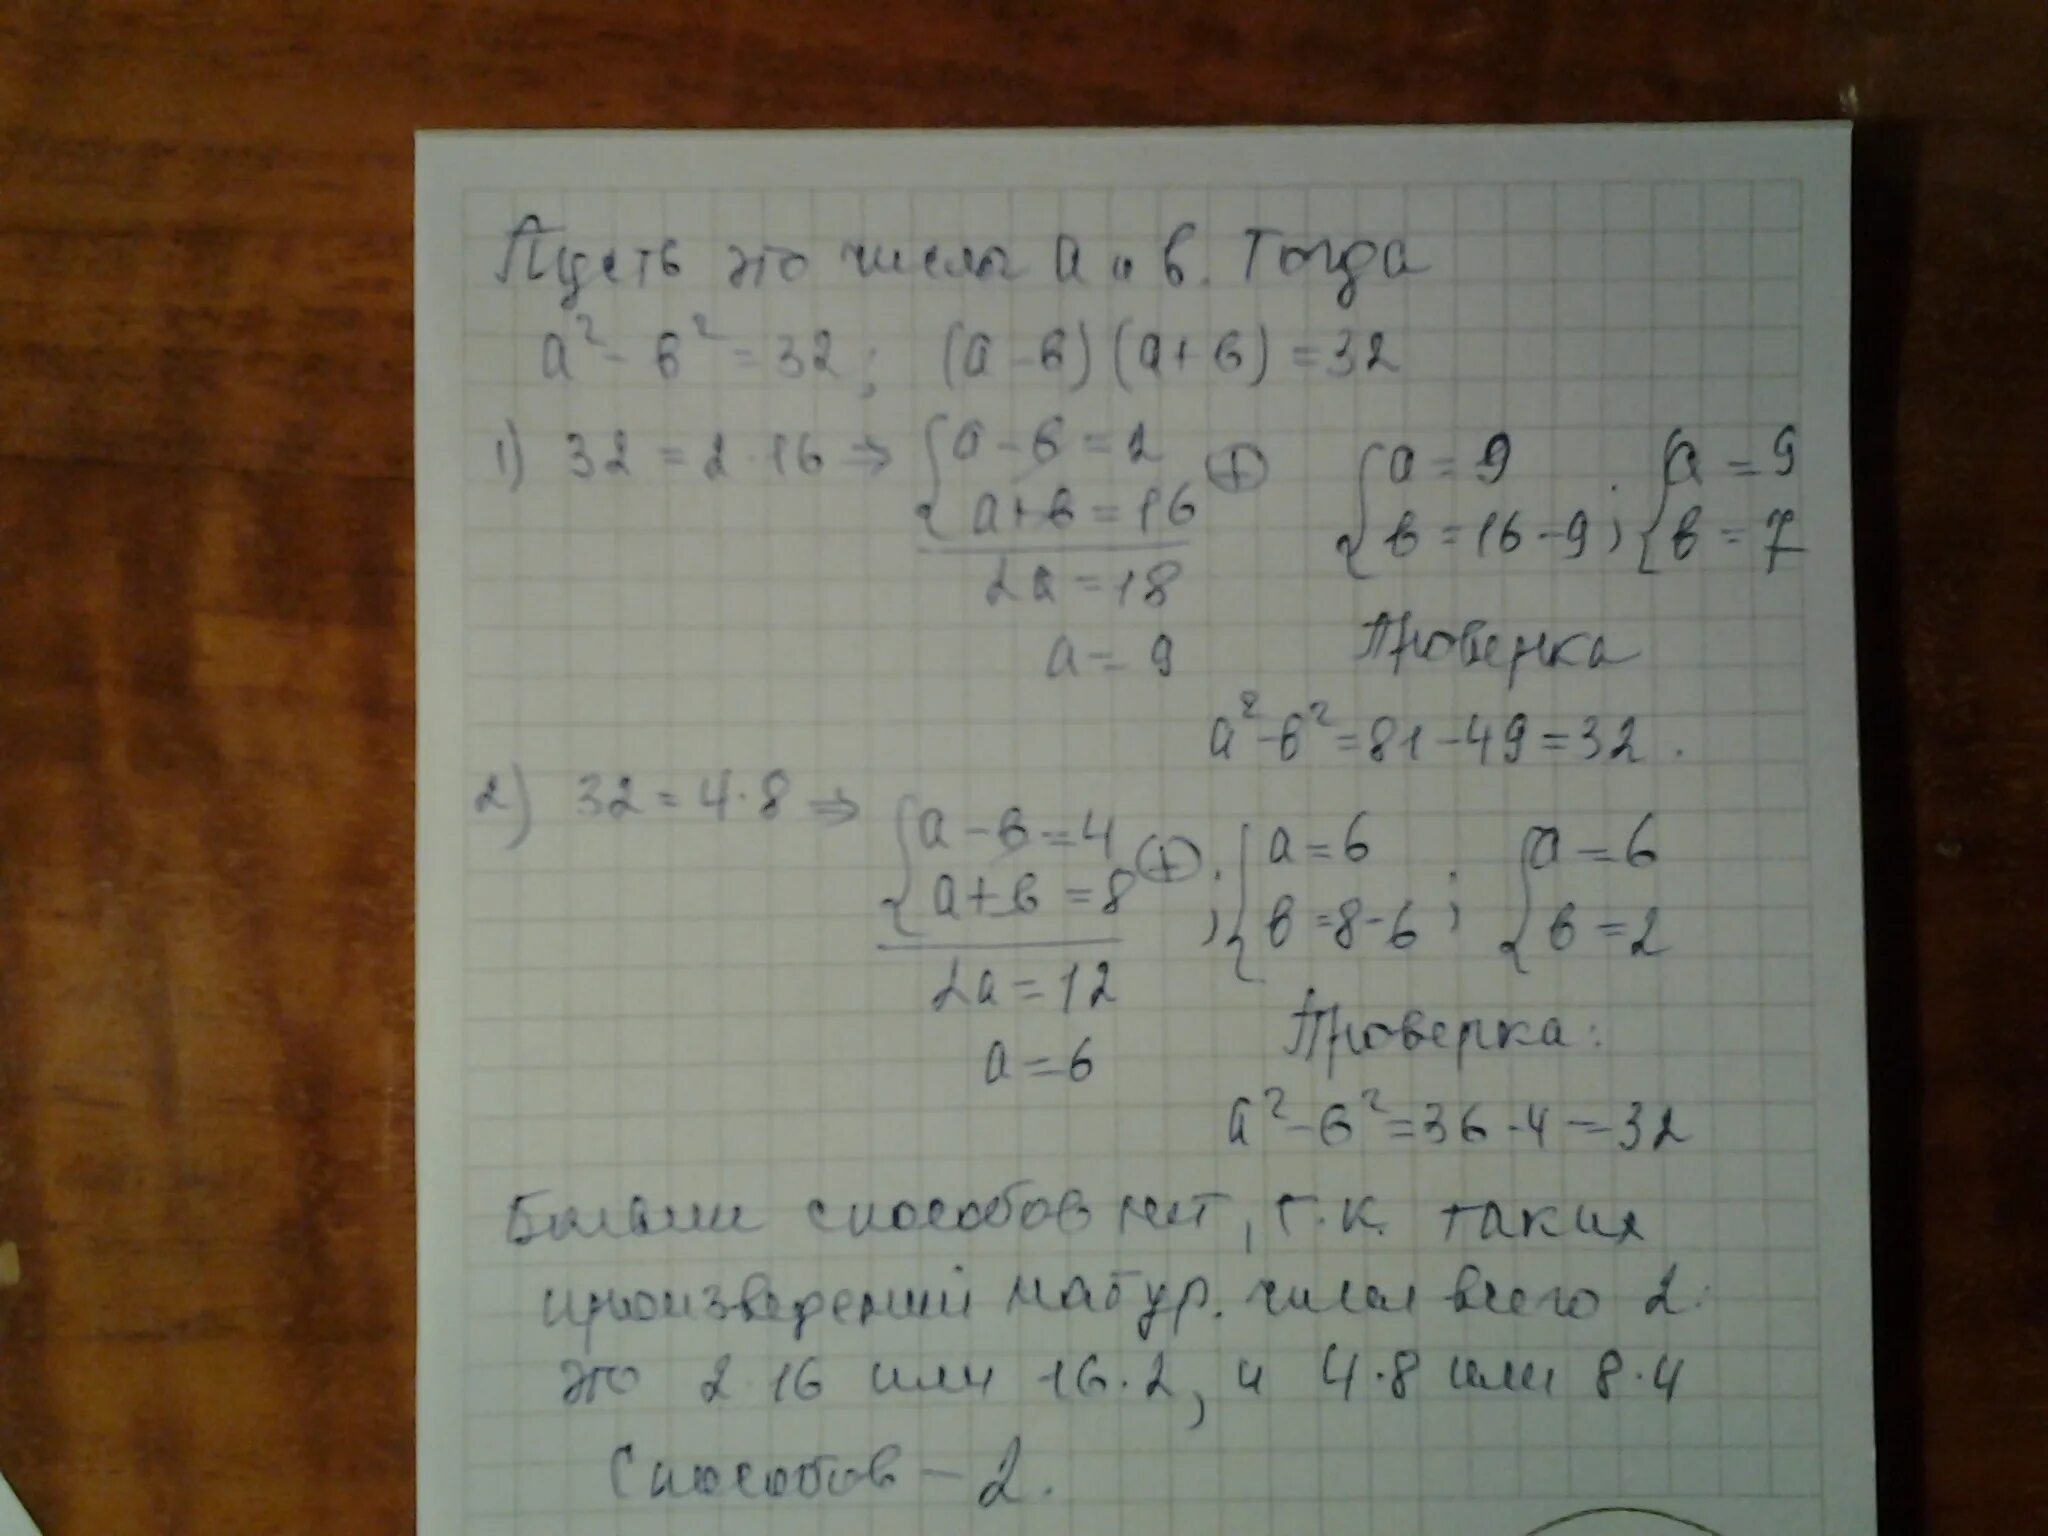 Пусть это числа а и в. Тогда
а² - в² = 32; (а - в)(а + в) = 32
1) 32 = 2·16 ⇒ { а - в = 2 ⊕ { а = 9 ; { а = 9
а + в = 16 в = 16 - 9 в = 7
2а = 18
а = 9
Проверка
а² - в² = 81 - 49 = 32.
2) 32 = 4·8 ⇒ { а - в = 4 ⊕ ; { а = 6 ; { а = 6
а + в = 8 в = 8 - 6 в = 2
2а = 12
а = 6
Проверка:
а² - в² = 36 - 4 = 32
способов нет, т.к. таких
произведений натур. чисел всего 2:
это 2·16 или 16·2, и 4·8 или 8·4
Способов – 2.